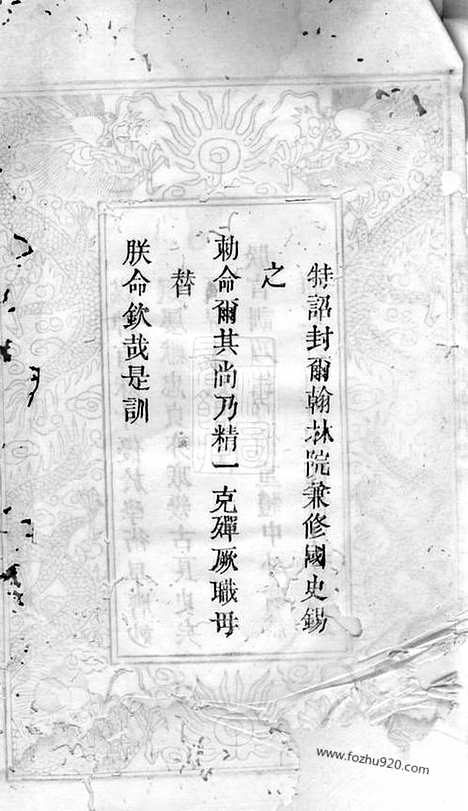 特詔封爾翰林院兼修國史錫
之
勅命爾其尚乃精一克殫厥職毋
替
朕命欽哉是訓
www.fozhu920.com